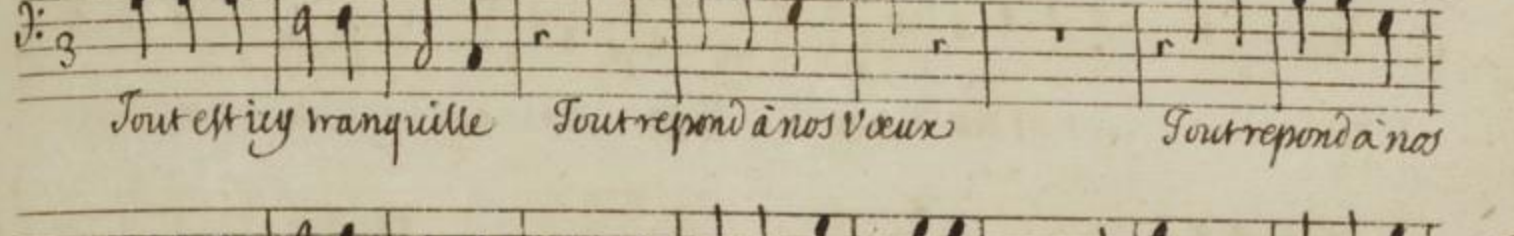 3
Tout est icy tranquille Tout repond à nos Vœux Tout repond à nos